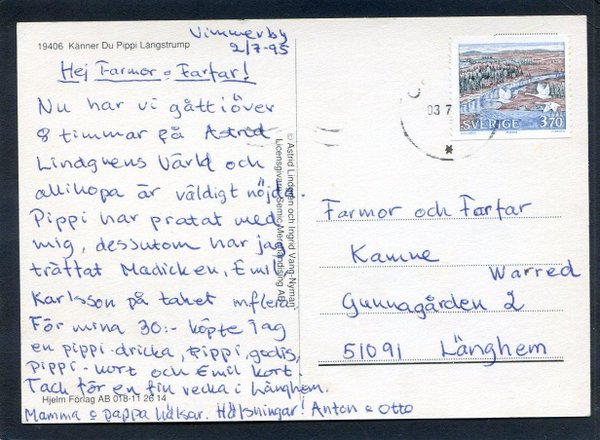 19406 Känner Du Pippi Långstrump
Vimmerby
2/7-95
Hej Farmor o Farfar!
Nu har vi gått i över
8 timmar på Astrid
Lindgrens Värld och
allihopa är väldigt nöjda.
Pippi har pratat med
mig, dessutom har jag
träffat Madicken, Emil
Karlsson på taket m flera
För mina 30:- köpte jag
en pippi-dricka, Pippi godis,
Pippi-kort och Emil kort.
Tack för en fin vecka i Länghem.
Hjelm Förlag AB 018-11 26 14
Mamma o pappa hälsar. Hälsningar! Anton o Otto
© Astrid Lindgren och Ingrid Vang-Nyman
Licensgivare Semic Merchandising AB
03 7
SVERIGE 3.70
Farmor och Farfar
Kamne
Warred
Gunnagården 2
51091 Länghem